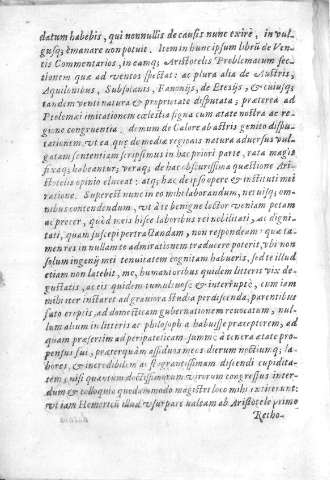 datum habebis, qui nonnullis de causis nunc exire, in vul-
gusq; emanare non potuit. Item in hunc ipsum librũ de Ven-
tis Commentarios, in eamq; Aristotelis Problematum sec-
tionem quæ ad ventos spectat: ac plura alia de Austris,
Aquilonibus, Subsolanis, Fauonijs, de Etesijs, & cuiusq;
tandem venti natura & proprietate disputata; præterea ad
Ptolemæi imitationem cœlestia signa cum ætate nostra ac re-
gione congruentia. demum de Calore ab astris genito dispu-
tationem, vt ea quæ de mediæ regionis natura aduersus vul-
gatam sententiam scripsimus in hac priori parte, rata magis
fixaq; habeantur; veraq; de hac obscurissima quæstione Ari-
stotelis opinio eluceat: atq; hæc de ipso opere & instituti mei
ratione. Superest nunc in eo mihi laborandum, neruisq; om-
nibus contendendum, vt à te benigne lector veniam petam
ac precer, quòd meis hisce laboribus rei nobilitati, ac digni-
tati, quam suscepi pertractandam, non respondeam: quæ ta-
men res in nullam te admirationem traducere poterit, vbi non
solum ingenij mei tenuitatem cognitam habueris, sed te illud
etiam non latebit, me, humanioribus quidem litteris vix de-
gustatis, ac eis quidem tumultuosè & interruptè, cum iam
mihi iter instaret ad grauiora studia perdiscenda, parentibus
fato ereptis, ad domesticam gubernationem reuocatum, nul-
lum alium in litteris ac philosophia habuisse præceptorem, ad
quam præsertim ad peripateticam summè à tenera ætate pro-
pensus fui, præterquàm assiduos meos dierum noctiumq; la-
bores, & incredibilem ac flagrantissimam discendi cupidita-
tem, nisi quantum doctissimorum virorum congressus inter-
dum & colloquia quodammodo magistri loco mihi extiterunt:
vt iam Homericũ illud vsurpare valeam ab Aristotele primo
Retho-